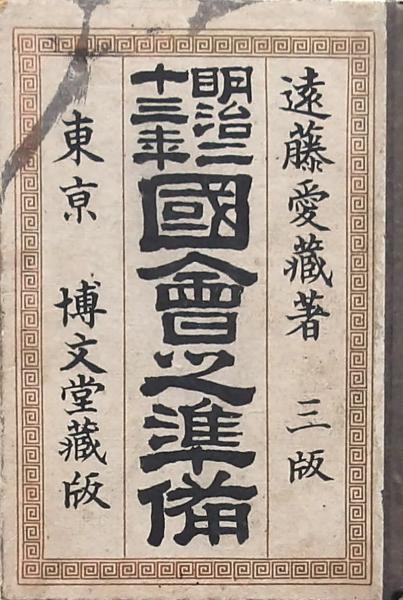 遠藤愛藏著 三版
明治二
十三年
國會之準備
東京 博文堂藏版